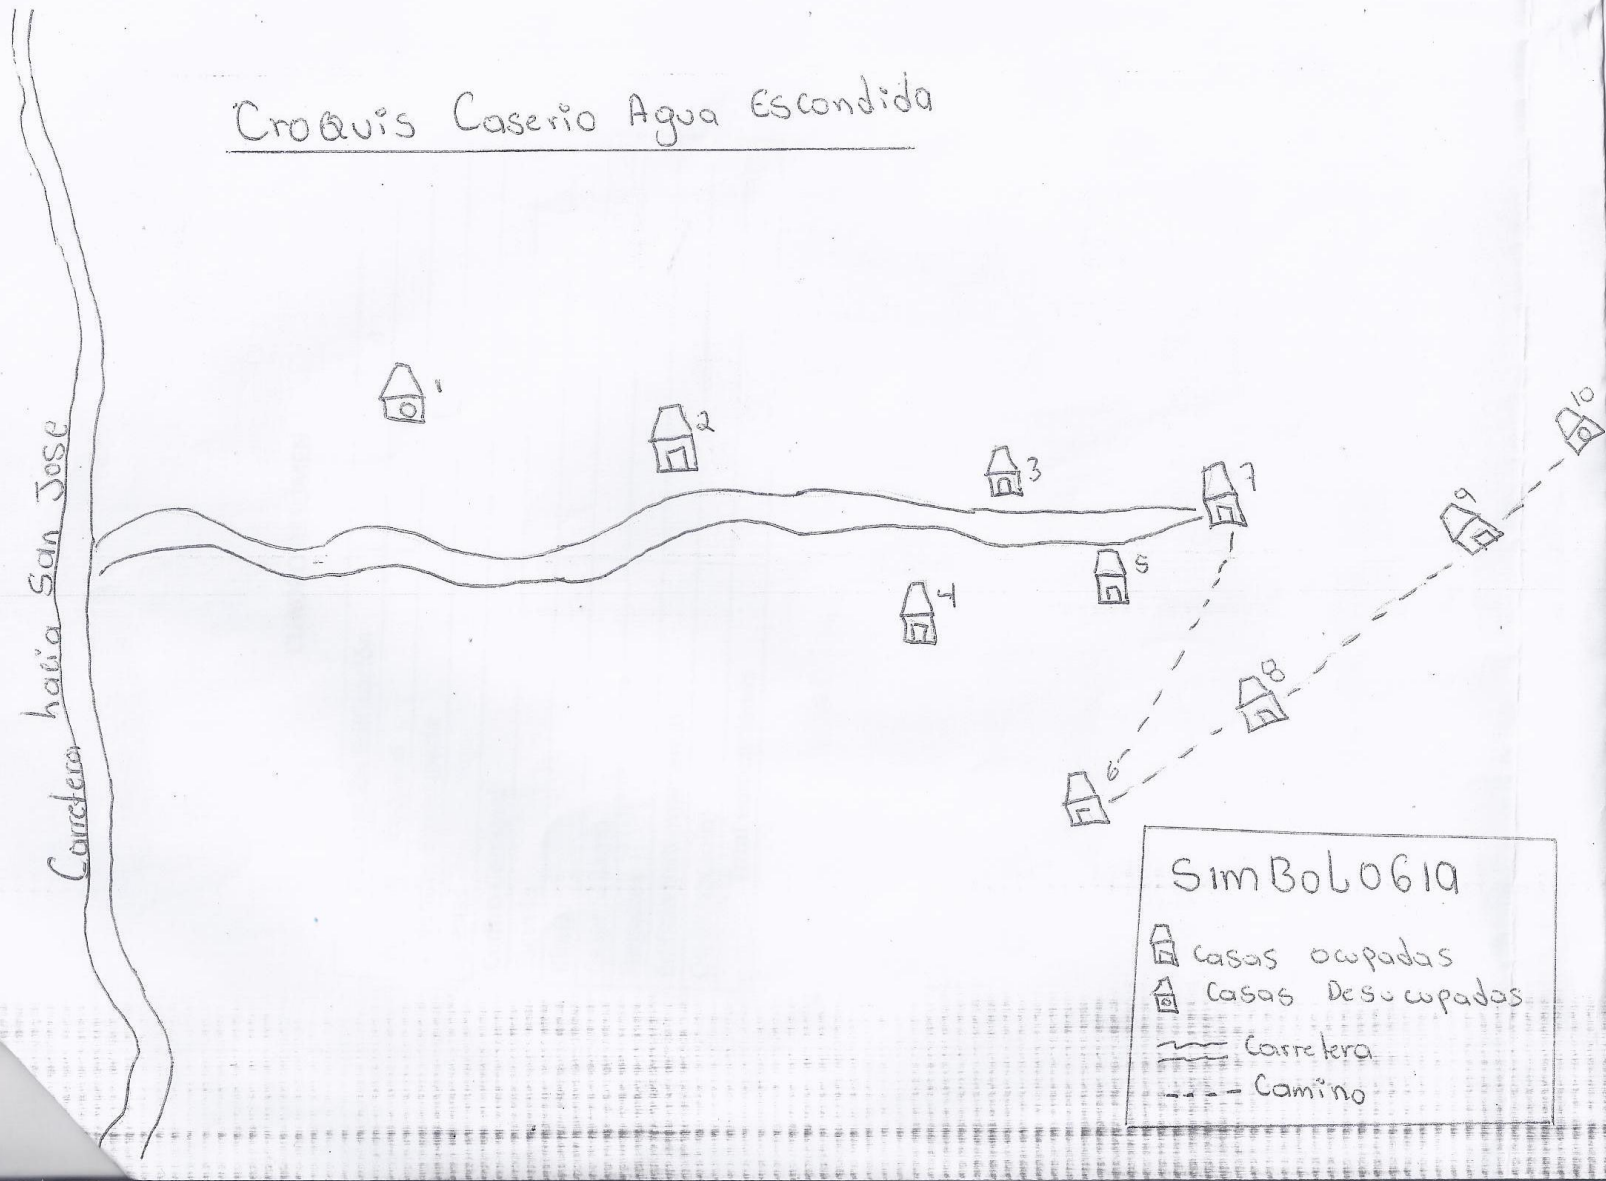 Croquis Caserio Agua Escondida
Carretera hacia San Jose
1
2
3
4
5
6
7
8
9
10
SimBoLOGIA
casas ocupadas
casas Desocupadas
Carretera
Camino